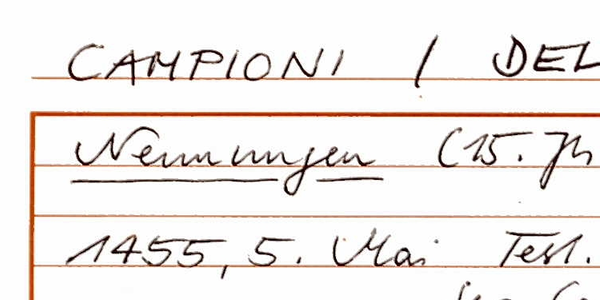 CAMPIONI / DEL
Nennungen (15. Jh
1455, 5. Mai Test.